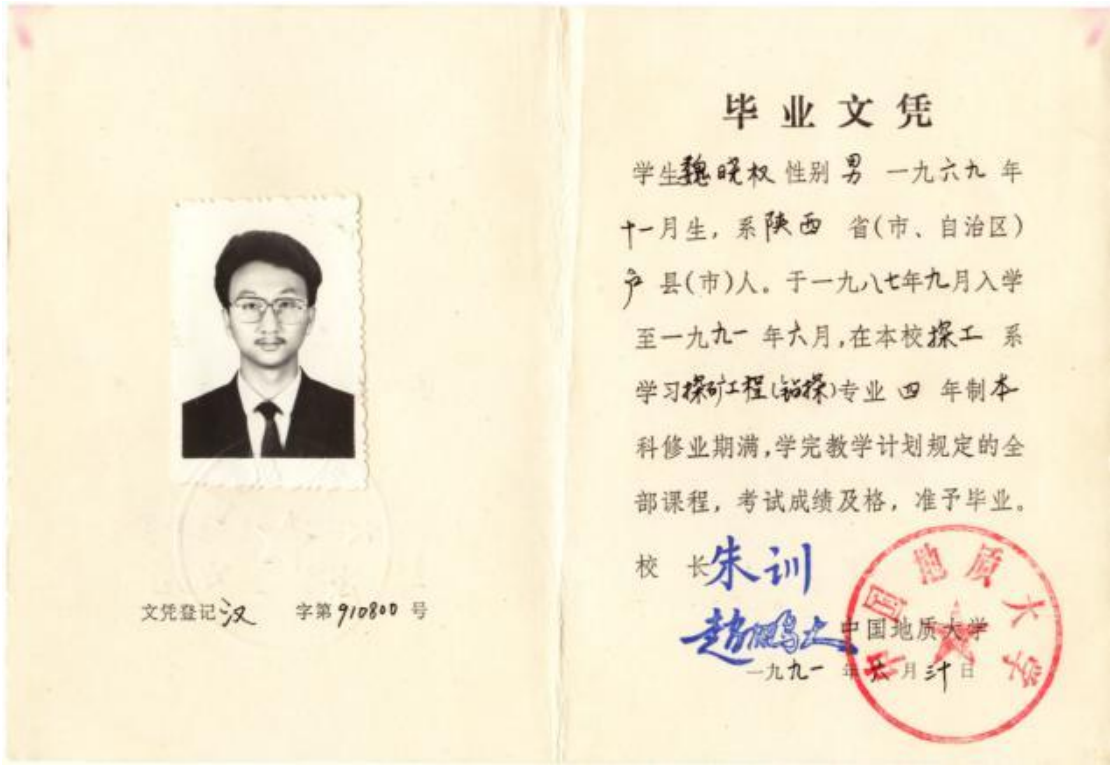 文凭登记汉 字第910800号
毕业文凭
学生魏晓权 性别 男 一九六九 年
十一月生，系陕西 省(市、自治区)
户 县(市)人。于一九八七年九月入学
至一九九一 年六月，在本校探工 系
学习探矿工程(钻探)专业 四 年制本
科修业期满，学完教学计划规定的全
部课程，考试成绩及格，准予毕业。
校 长 朱训
赵鹏大
中国地质大学
一九九一 年 六 月 三十 日
中国地质大学